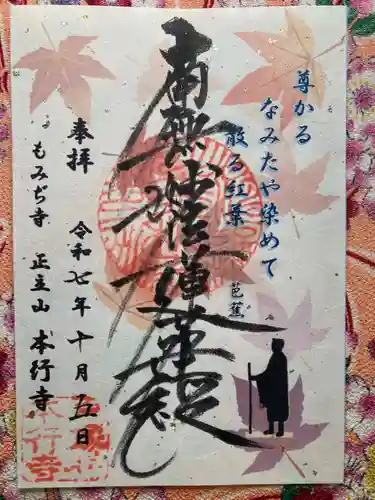 尊かる
なみたや染めて
散る紅葉
芭蕉
南無妙法蓮華経
奉拝 令和七年十月五日
もみぢ寺 正主山 本行寺